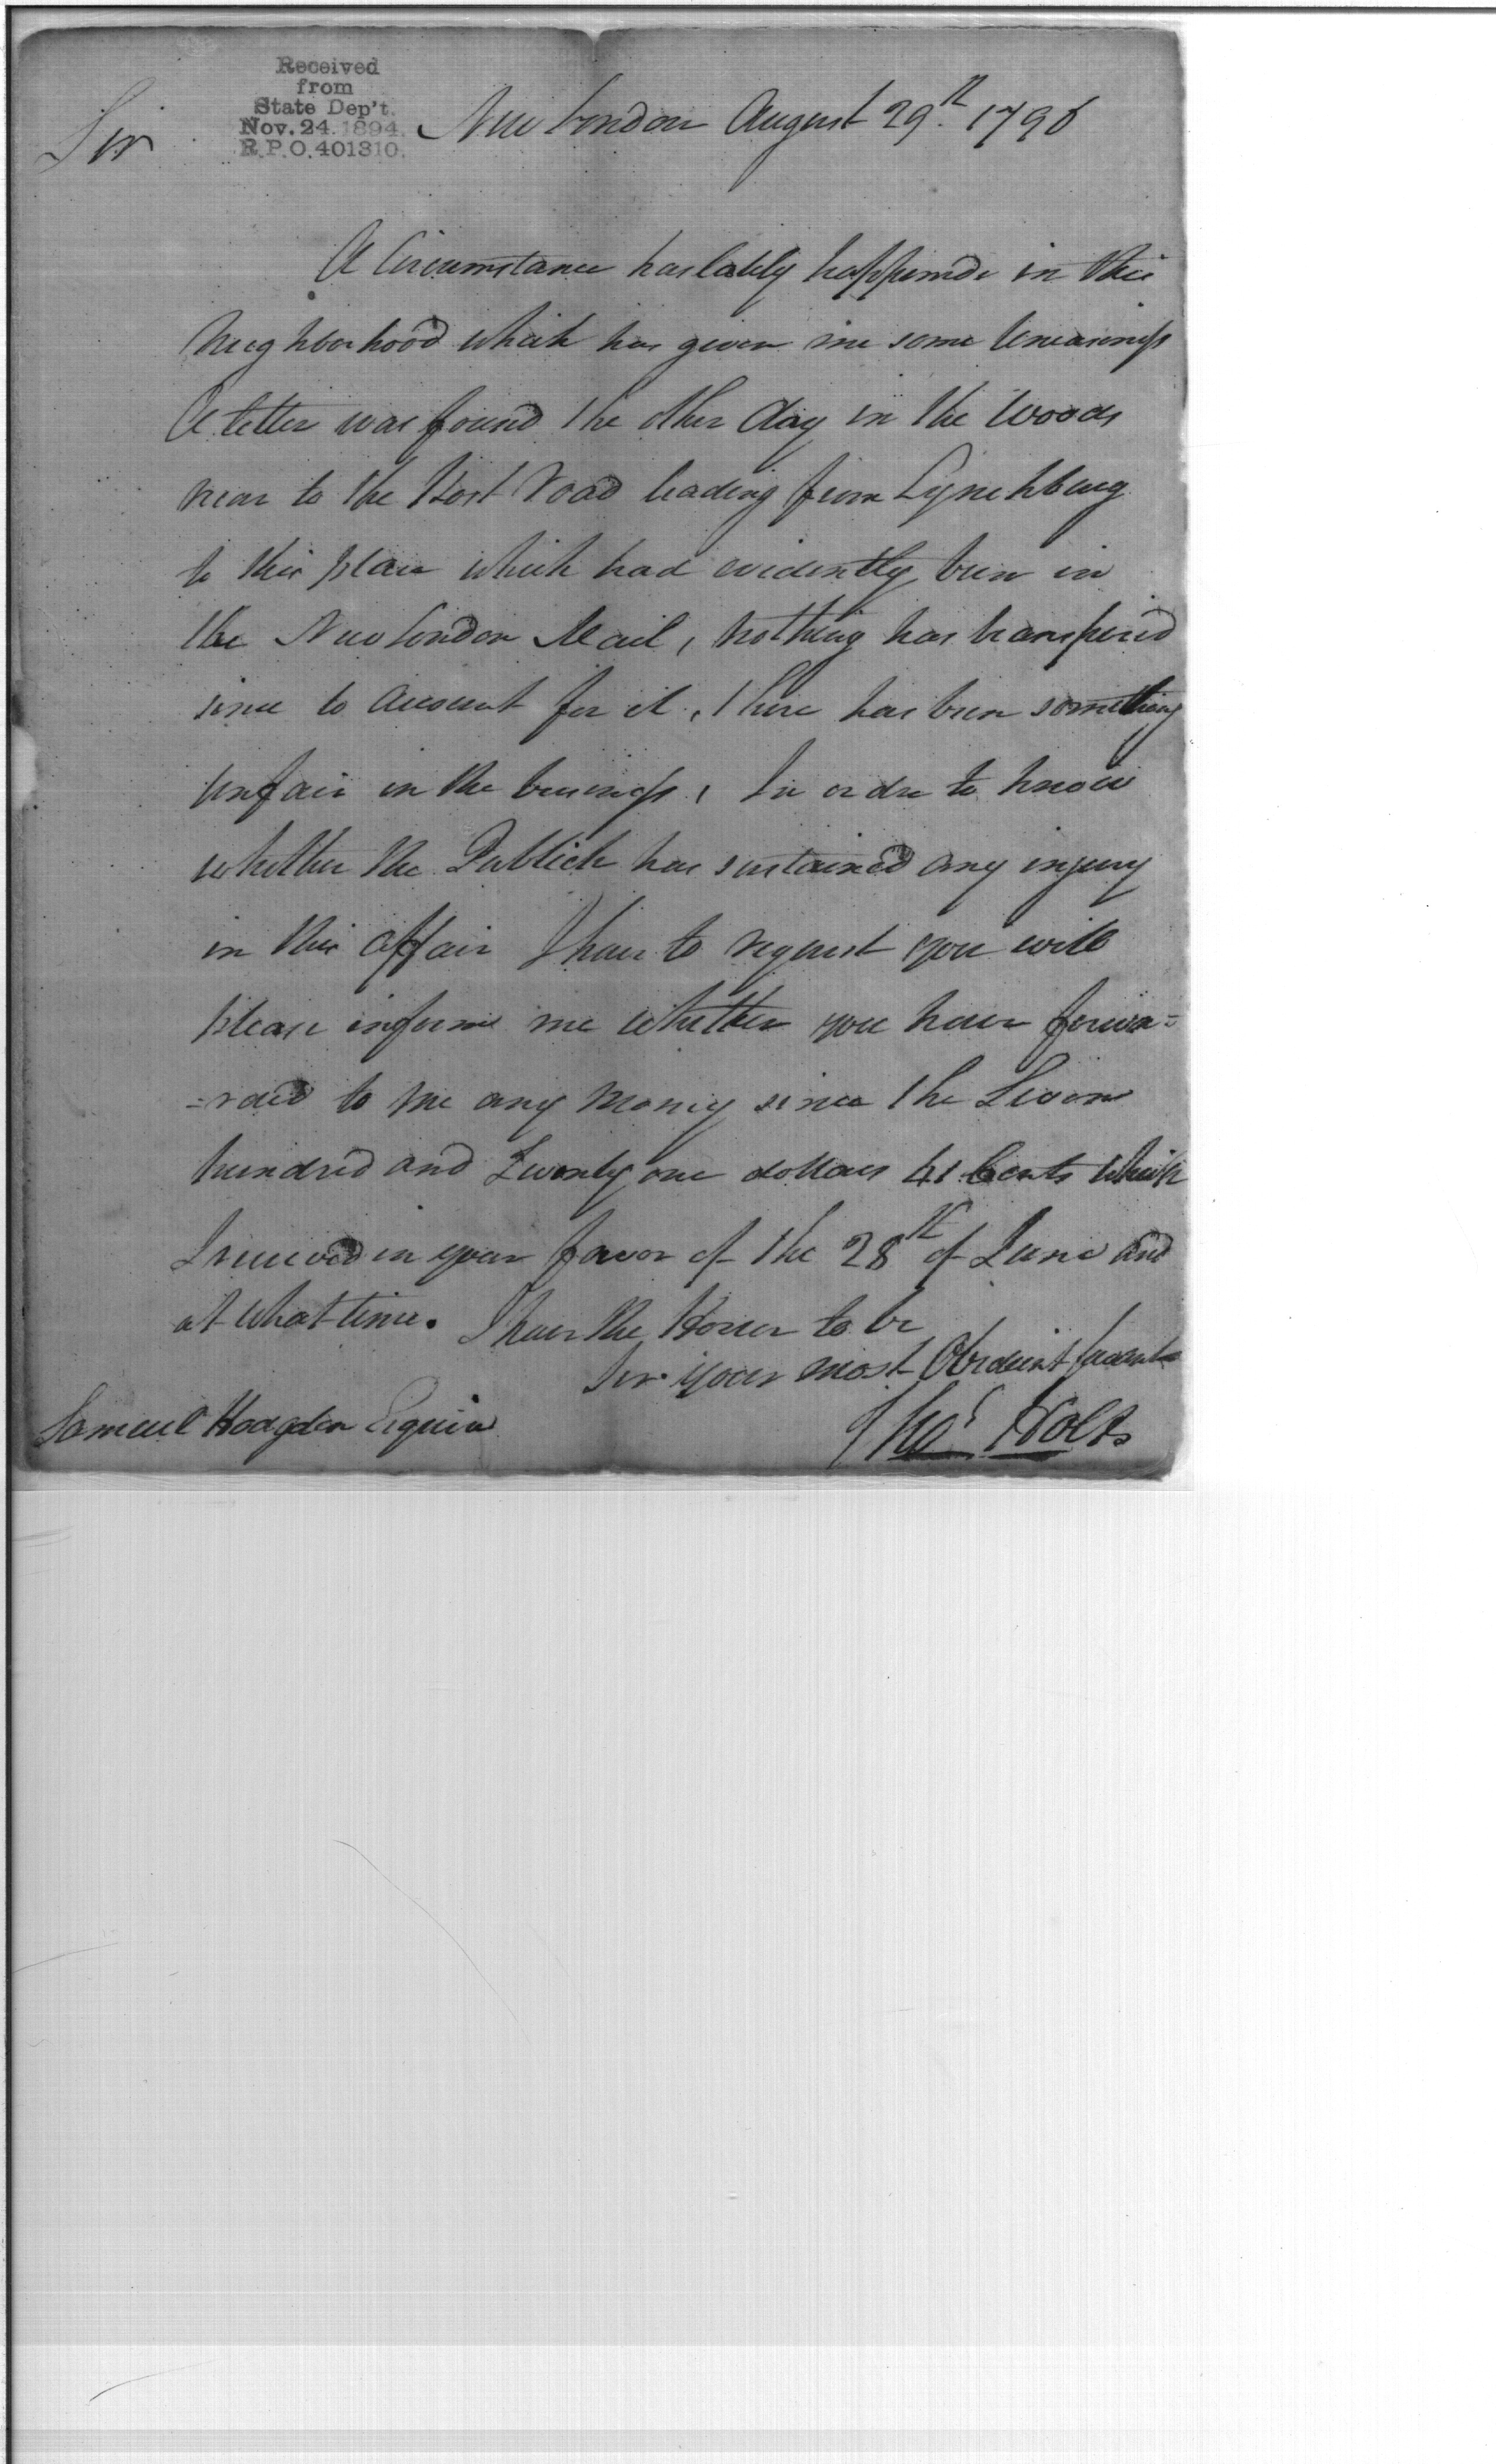 Received
from
State Dep't.
Nov. 24. 1894.
R.P.O. 401310.
New London August 29th. 1796
Sir
A Circumstance has lately happened in this
Neighborhood which has given me some Uneasiness
A letter was found the other day in the Woods
near to the Post Road leading from Lynchburg
to this place which had evidently been in
the New London Mail, nothing has transpired
since to account for it, there has been something
unfair in the business, In order to know
whether the Publick has sustained any injury
in this affair I have to request you will
please inform me whether you have forwa=
=rded to me any Money since the Seven
hundred and Twenty one dollars 41 Cents which
I received in your favor of the 28th of June and
at what time. I have the Honor to be
Sir your most Obedient Servant
Samuel Hodgdon Esquire
Thos Holt